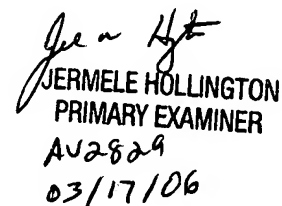 JERMELE HOLLINGTON
PRIMARY EXAMINER
AU2829
03/17/06